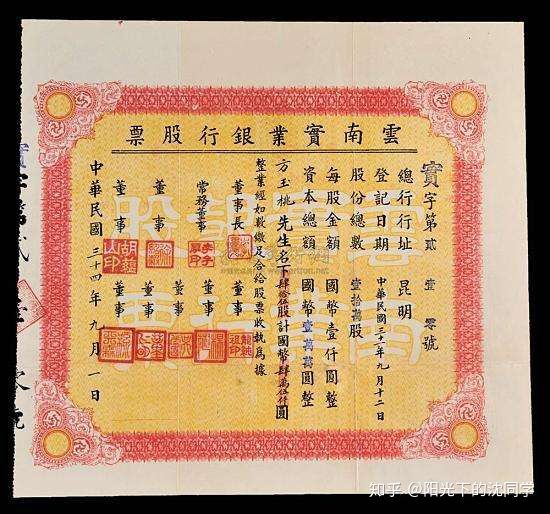 雲南實業銀行股票
實字第貳 壹零號
總行行址 昆明
登記日期 中華民國三十一年九月十二日
股份總數 壹拾萬股
每股金額 國幣壹仟圓整
資本總額 國幣壹萬萬圓整
方玉桃先生名下肆拾伍股計國幣肆萬伍仟圓
整業經如數繳足合給股票收執為據
董事長
常務董事
董事
董事
胡蘊山印
董事
董事
董事
董事
董事
中華民國三十四年九月一日
知乎 @阳光下的沈同学